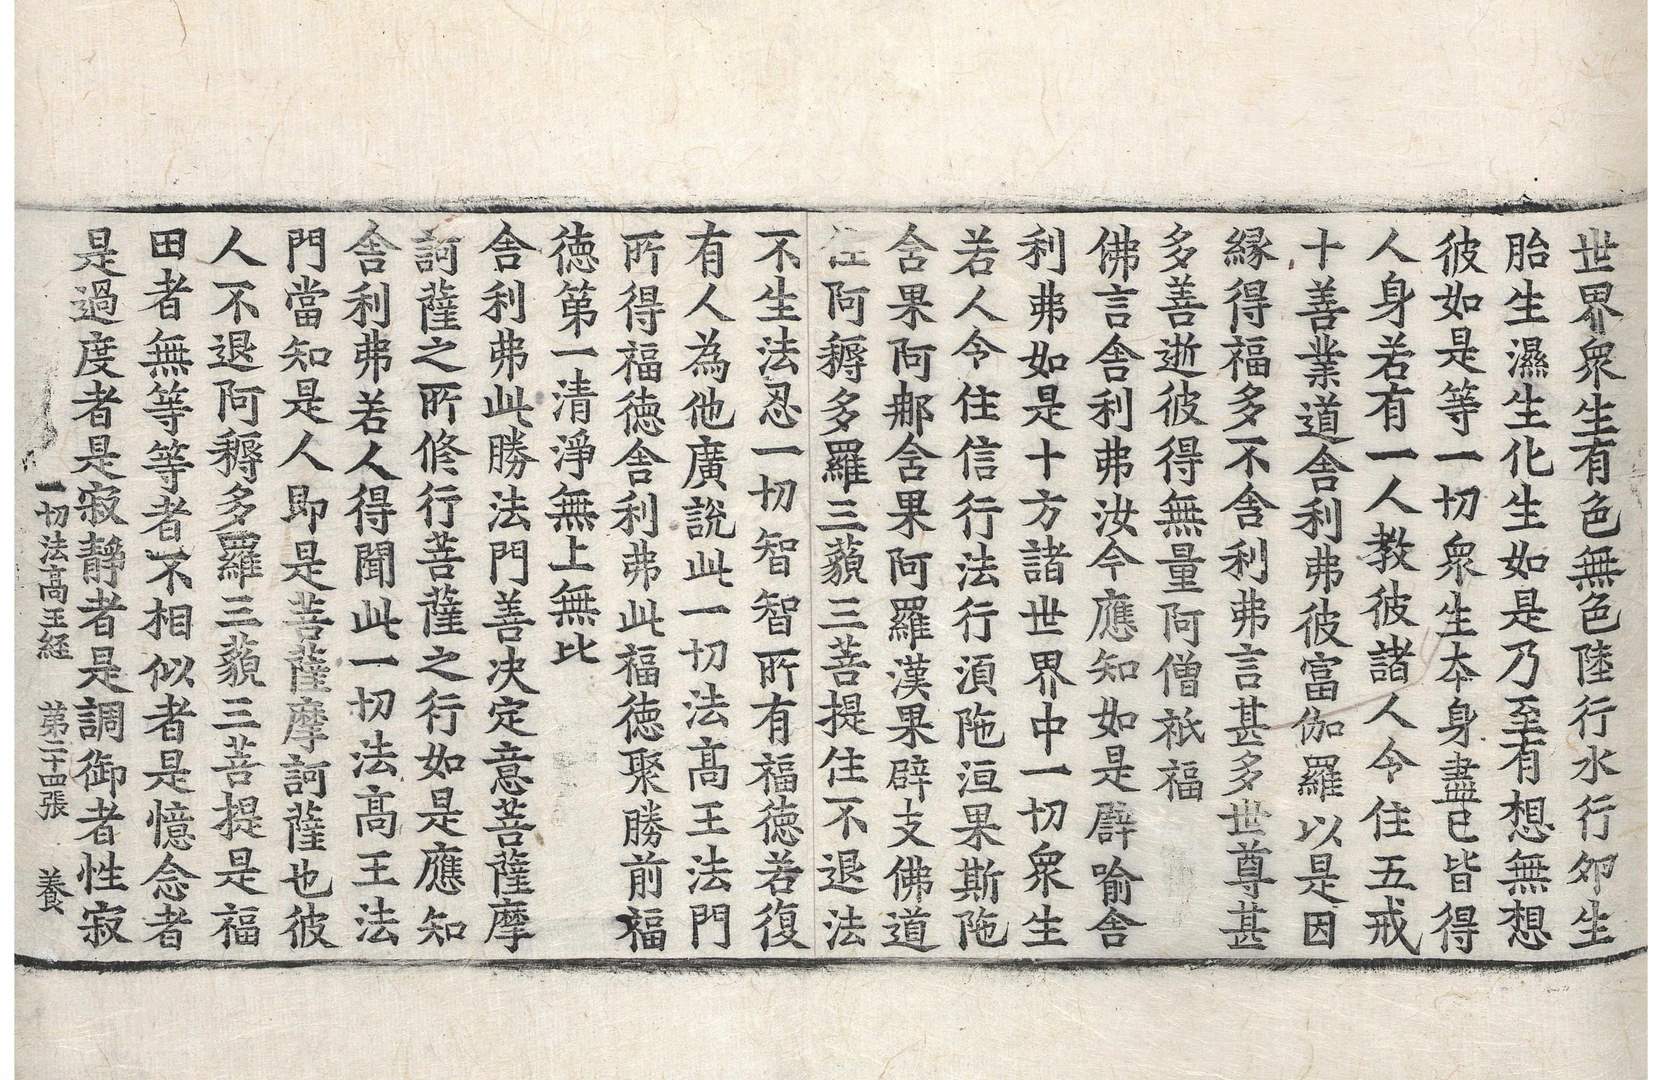 世界衆生有色無色陸行水行夘生
胎生濕生化生如是乃至有想無想
彼如是等一切衆生夲身盡已皆得
人身若有一人教彼諸人令住五戒
十善業道舎利弗彼富伽羅以是因
縁得福多不舎利弗言甚多世尊甚
多善逝彼得無量阿僧祇福
佛言舎利弗汝今應知如是譬喻舎
利弗如是十方諸世界中一切衆生
若人令住信行法行湏陁洹果斯陁
舎果阿那舎果阿羅漢果辟支佛道
住阿耨多羅三藐三菩提住不退法
不生法忍一切智智所有福徳若復
有人為他廣說此一切法髙王法門
所得福徳舎利弗此福徳聚勝前福
徳第一清淨無上無比
舎利弗此勝法門善决定意菩薩摩
訶薩之所修行菩薩之行如是應知
舎利弗若人得聞此一切法髙王法
門當知是人即是菩薩摩訶薩也彼
人不退阿耨多羅三藐三菩提是福
田者無等等者不相似者是憶念者
是過度者是寂靜者是調御者性寂
一切法髙王経 第二十四張 養